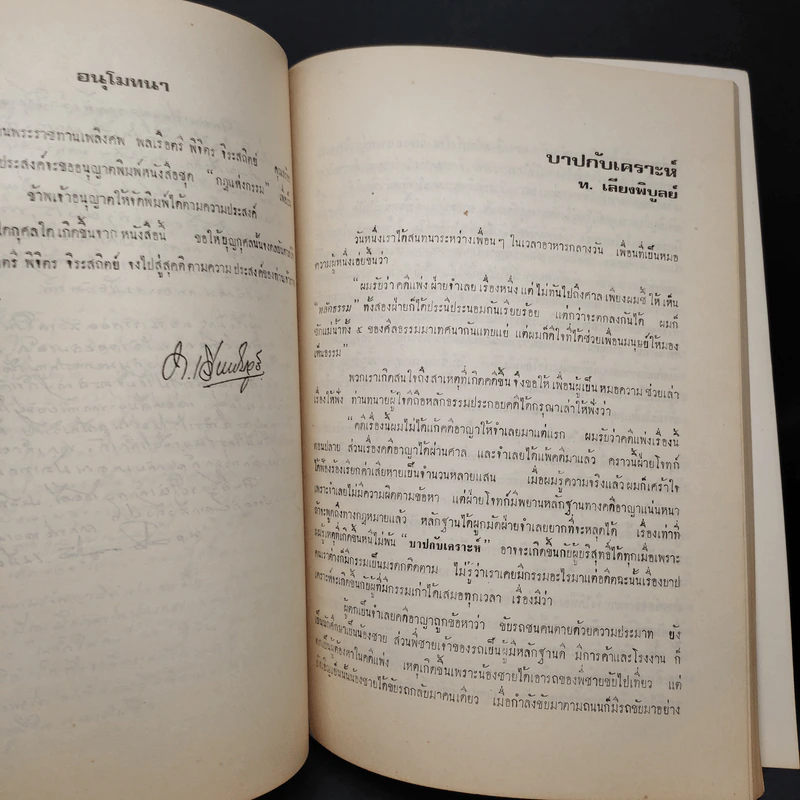 อนุโมทนา
นพระราชทานเพลิงศพ พลเรือตรี พิจิตร จิระสถิตย์
ประสงค์จะขออนุญาตพิมพ์หนังสือชุด “กฎแห่งกรรม”
ข้าพเจ้าอนุญาตให้จัดพิมพ์ได้ตามความประสงค์
ใดกุศลใด เกิดขึ้นจาก หนังสือนี้ ขอให้บุญกุศลนั้นจงดลบันดาล
ตรี พิจิตร จิระสถิตย์ จงไปสู่สุคติตามความประสงค์ของท่าน
บาปกับเคราะห์
ท. เลียงพิบูลย์
วันหนึ่งเราได้สนทนาระหว่างเพื่อนๆ ในเวลาอาหารกลางวัน เพื่อนที่เป็นหมอ
ความผู้หนึ่งเอ่ยขึ้นว่า
“ผมรับว่าคดีแพ่ง ฝ่ายจำเลย เรื่องหนึ่ง แต่ไม่ทันไปถึงศาล เพียงผมชี้ให้เห็น
“หลักธรรม” ทั้งสองฝ่ายก็ได้ประนีประนอมกันเรียบร้อย แต่กว่าจะตกลงกันได้ ผมก็
ชักแม่น้ำทั้ง ๕ ของศีลธรรมมาเทศนากันแทบแย่ แต่ผมก็ดีใจที่ได้ช่วยเพื่อนมนุษย์ให้มอง
เห็นธรรม”
พวกเราเกิดสนใจถึงสาเหตุที่เกิดคดีขึ้น จึงขอให้ เพื่อนผู้เป็น หมอความ ช่วยเล่า
เรื่องให้ฟัง ท่านทนายผู้ใจดีถือหลักธรรมประกอบคดีได้กรุณาเล่าให้ฟังว่า
“คดีเรื่องนี้ผมไม่ได้แก้คดีอาญาให้จำเลยมาแต่แรก ผมรับว่าคดีแพ่งเรื่องนี้
ตอนปลาย ส่วนเรื่องคดีอาญาได้ผ่านศาล และจำเลยได้แพ้คดีมาแล้ว คราวนี้ฝ่ายโจทก์
ได้ฟ้องร้องเรียกค่าเสียหายเป็นจำนวนหลายแสน เมื่อผมรู้ความจริงแล้วผมก็เศร้าใจ
เพราะจำเลยไม่มีความผิดตามข้อหา แต่ฝ่ายโจทก์มีพยานหลักฐานทางคดีอาญาแน่นหนา
ถ้าจะพูดถึงทางกฎหมายแล้ว หลักฐานได้ผูกมัดฝ่ายจำเลยยากที่จะหลุดได้ เรื่องเท่าที่
ผมรู้เหตุที่เกิดขึ้นหนีไม่พ้น “บาปกับเคราะห์” อาจจะเกิดขึ้นกับผู้บริสุทธิ์ได้ทุกเมื่อเพราะ
คนเราต่างก็มีกรรมเป็นมรดกติดตาม ไม่รู้ว่าเราเคยมีกรรมอะไรมาแต่อดีตฉะนั้นเรื่องบาป
เคราะห์จะเกิดขึ้นกับผู้ที่มีกรรมเก่าได้เสมอทุกเวลา เรื่องมีว่า
ผู้ตกเป็นจำเลยคดีอาญาถูกข้อหาว่า ขับรถชนคนตายด้วยความประมาท ยัง
เป็นนักศึกษาเป็นน้องชาย ส่วนพี่ชายเจ้าของรถเป็นผู้มีหลักฐานดี มีการค้าและโรงงาน ก็
ตกเป็นผู้ต้องหาในคดีแพ่ง เหตุเกิดขึ้นเพราะน้องชายได้เอารถของพี่ชายขับไปเที่ยว แต่
บังเอิญเย็นนั้นน้องชายได้ขับรถกลับมาคนเดียว เมื่อกำลังขับมาตามถนนก็มีรถขับมาอย่าง